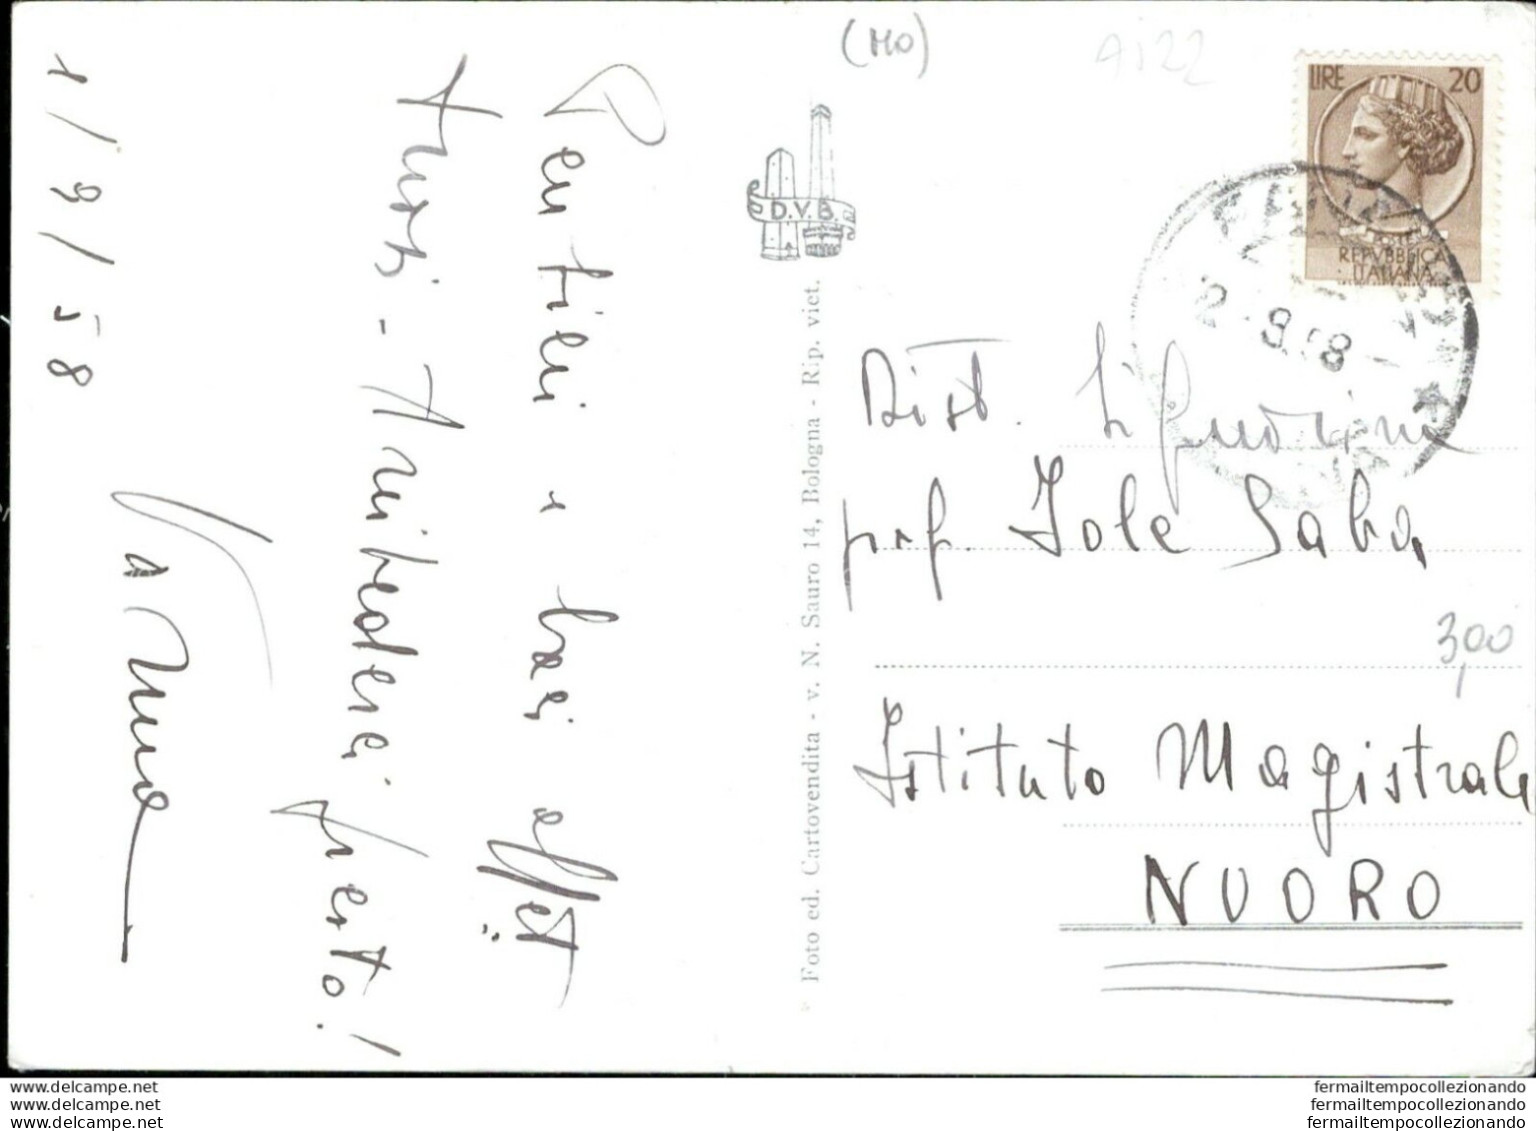 (MO)
9122
LIRE 20
REPVBBLICA
ITALIANA
2 - 9.58 -
D.V.B.
1/9/58
Pensieri e baci affett
tuosi - Arrivederci presto!
Foto ed. Cartovendita - v. N. Sauro 14, Bologna - Rip. viet.
Dist. Signorina
prof. Iole Saba
3,00
Istituto Magistrale
NUORO
www.delcampe.net
www.delcampe.net
www.delcampe.net
fermailtempocollezionando
fermailtempocollezionando
fermailtempocollezionando